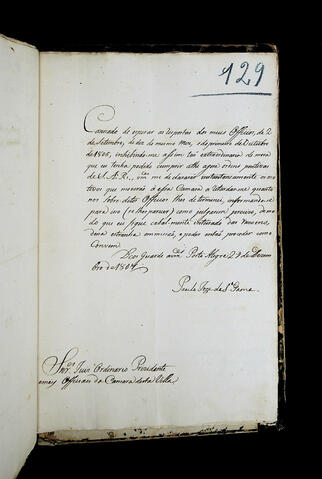 129
Cansado de esperar as respostas dos meus Officios, de 2
de Setembro, de dez do mesmo Mez, e de primeiro de Outubro
de 1806, inhibindo-me assim tão extraordinaria demora
que eu tenha podido cumprir athe agora ordens positivas
de S.A.R., me declararão instantaneamente os mo
tivos que moverão a essa Camara a retardar-me quanto
nos sobre ditos Officios lhes determinei, informando-se
para isso (se lhes parecer) como julgarem preciso, de mo
do que eu fique cabalmente inteirado das razoens,
desta estranha ommissão, e poder então proceder como
Convem.
Deos Guarde a Porto Alegre 29 de Dezem
bro de 1807
Paulo Joze da Sª Gama
Snrs. Juiz Ordinario Prezidente
e mais Officiaes da Camara desta Villa